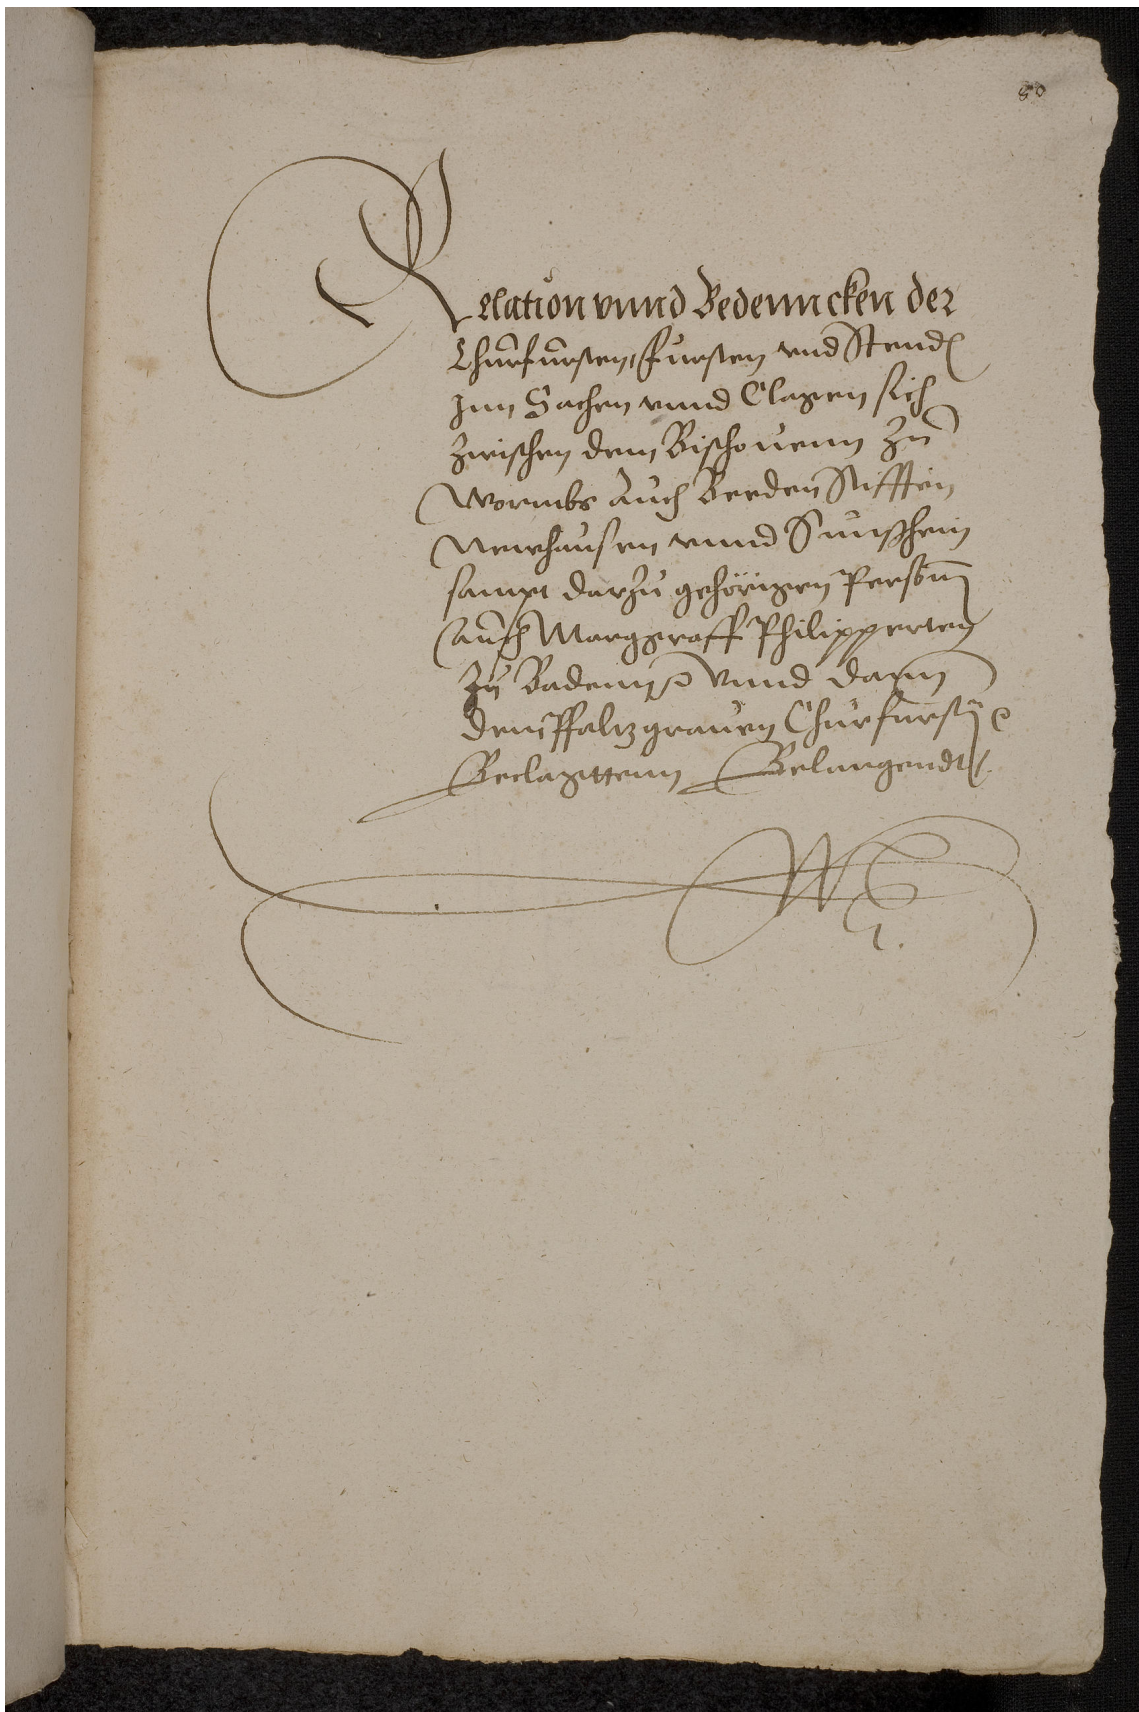 80
Relation vnnd Bedenncken der
Churfursten, Fursten vnd Stend
Inn Sachen vnnd Clagen sich
zwischen dem Bischouenn zu
Wormbs auch Beeden Stifften
Newhausen vnnd Sinßheim
sampt darzu gehörigen Personn
auch Marggraff Philipperten
zu Badenn vnnd dann
dem Pfaltzgrauen Churfursten
Beclagttenn Belangendt